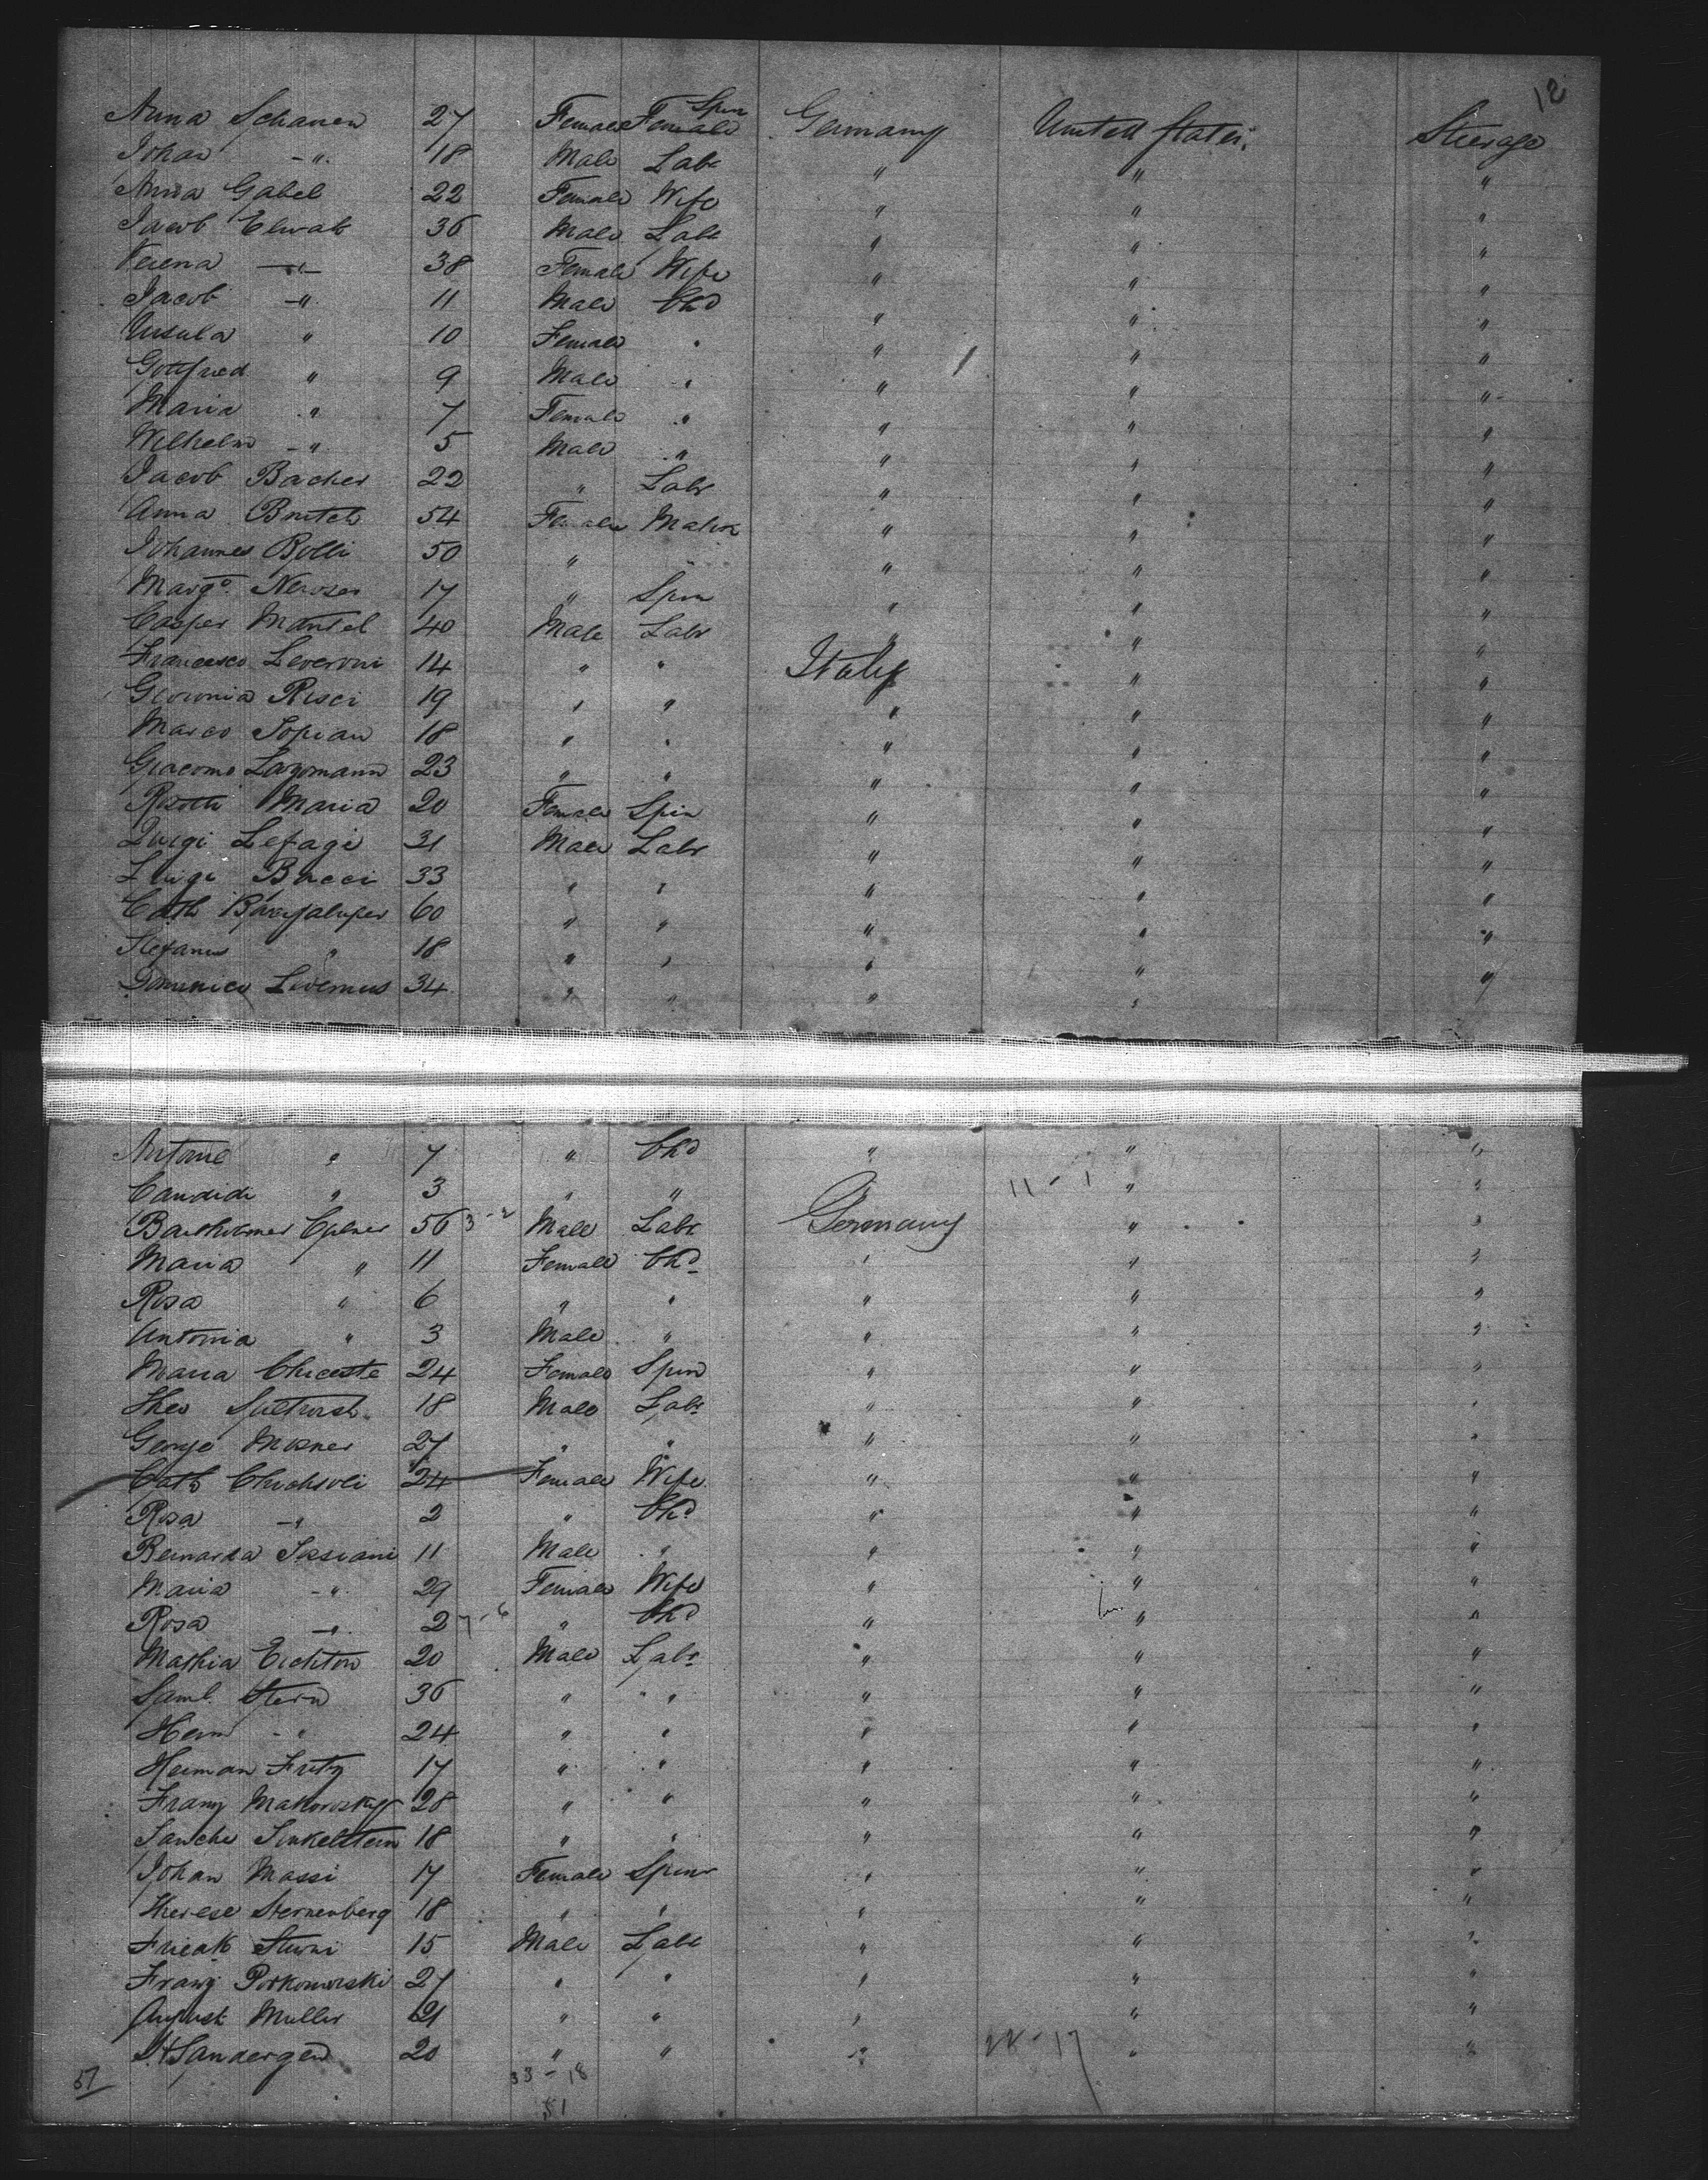 12
Anna Schauen 27 Female Female Spin Germany United States. Steerage
Johan -"- 18 Male Labr " " "
Anna Gabel 22 Female Wife " " "
Jacob Elwab 36 Male Labr " " "
Verena -"- 38 Female Wife " " "
Jacob -" 11 Male Chd " " "
Ursula " 10 Female " " " "
Gottfried " 9 Male " " " "
Maria " 7 Female " " " "
Wilhelm -" 5 Male " " " "
Jacob Bacher 22 " Labr " " "
Anna 54 Female " " "
Johannes Bolli 50 " " " "
Margt 17 " Spin " " "
Casper Mantel 40 Male Labr " " "
Francesco Leveroni 14 " " Italy " "
Risci 19 " " " " "
Marco Sopian 18 " " " " "
Giacomo Lagomann 23 " " " " "
Risotti Maria 20 Female Spin " " "
Luigi Lefagi 31 Male Labr " " "
Luigi Bacci 33 " " " " "
Cath 60 " " " " "
Stefanus " 18 " " " " "
Domenico 34 " " " " "
Antonie " 7 " Chd " " "
Candidi " 3 " " " 11-1 " "
56 3-2 Male Labr Germany " "
Maria " 11 Female Chd " " "
Rosa " 6 " " " " "
Antonia " 3 Male " " " "
Maria Chiceste 24 Female Spin " " "
Theo 18 Male Labr " " "
George Misner 27 " " " " "
Cath 24 Female Wife " " "
Rosa -" 2 " Chd " " "
Bernarda 11 Male " " " "
Maria -" 29 Female Wife " " "
Rosa -" 2 7-6 " Chd " " "
Mathia Eichton 20 Male Labr " " "
Saml. Stern 36 " " " " "
Herm -" 24 " " " " "
Herman Fritz 17 " " " " "
Franz Makowsky 28 " " " " "
Sinkelstein 18 " " " " "
Johan Massi 17 Female Spinr " " "
Therese Sternenberg 18 " " " " "
15 Male Labr " " "
Franz Porkomorski 27 " " " " "
August Muller 21 " " " " "
Sandergen 20 " " " 22-17 " "
51 33-18
51